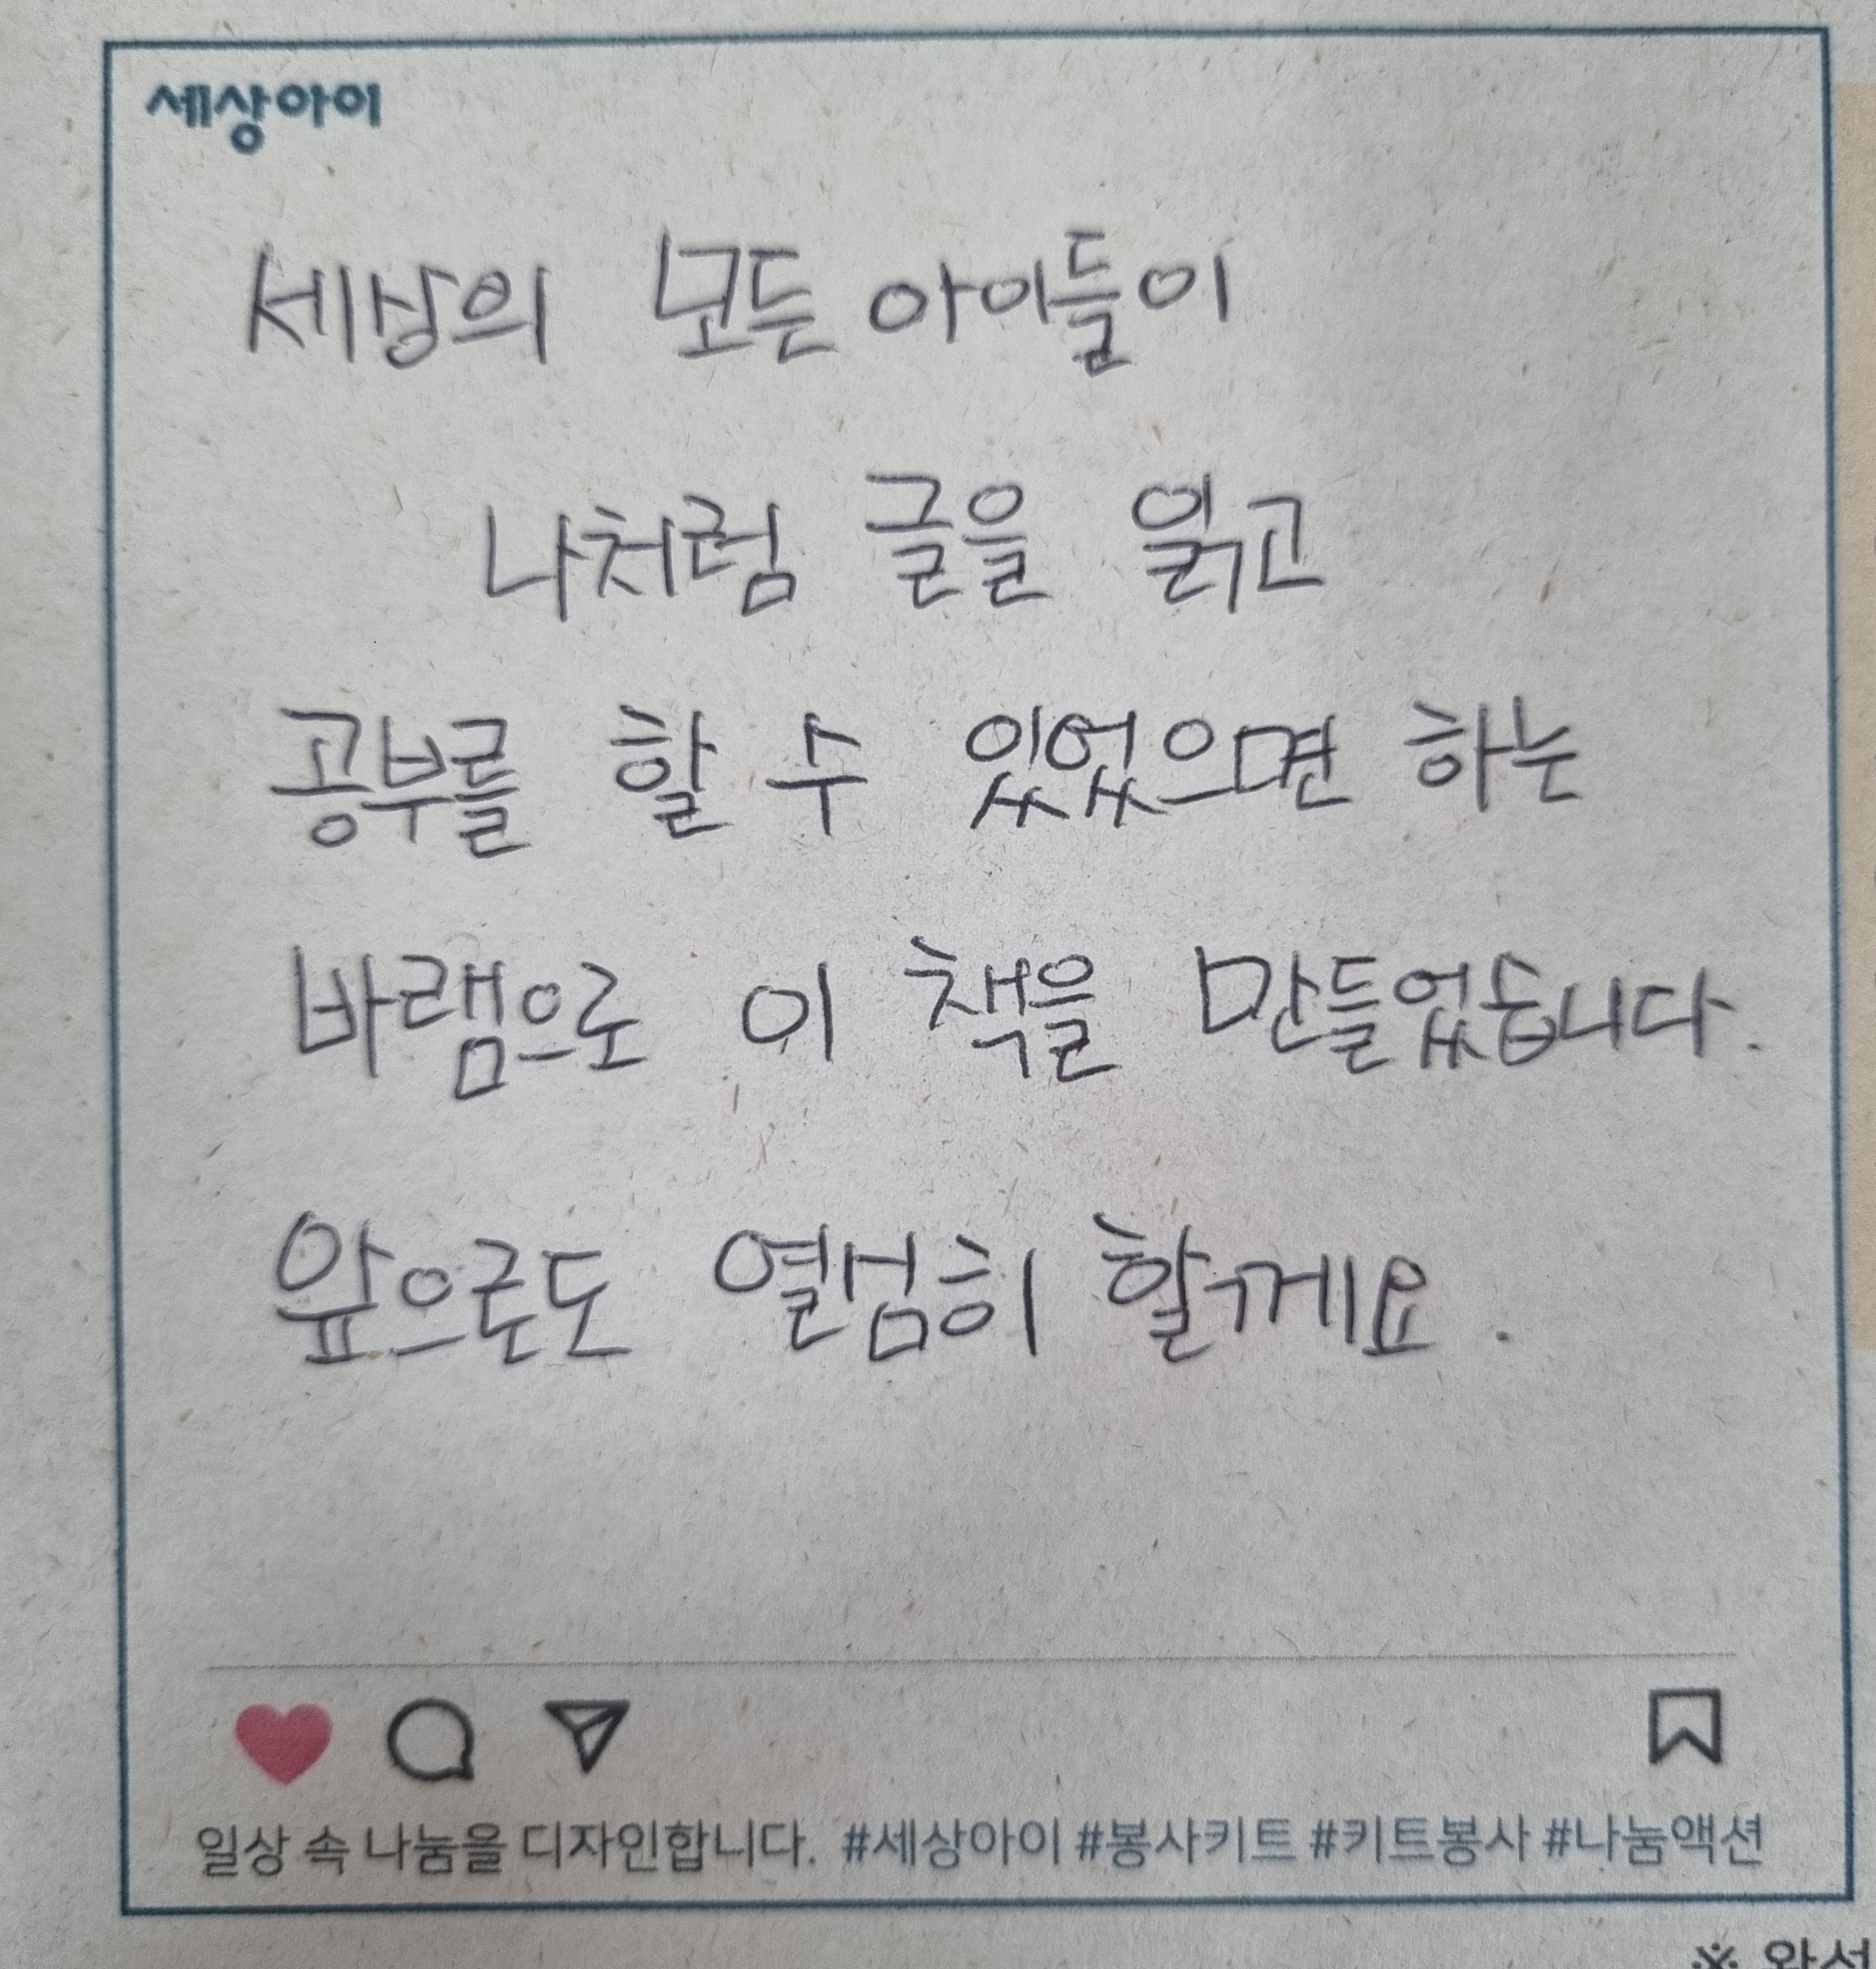 세상아이
세상의 모든 아이들이
나처럼 글을 읽고
공부를 할 수 있었으면 하는
바램으로 이 책을 만들었습니다.
앞으로도 열심히 할께요.
일상 속 나눔을 디자인합니다. #세상아이 #봉사키트 #키트봉사 #나눔액션
※